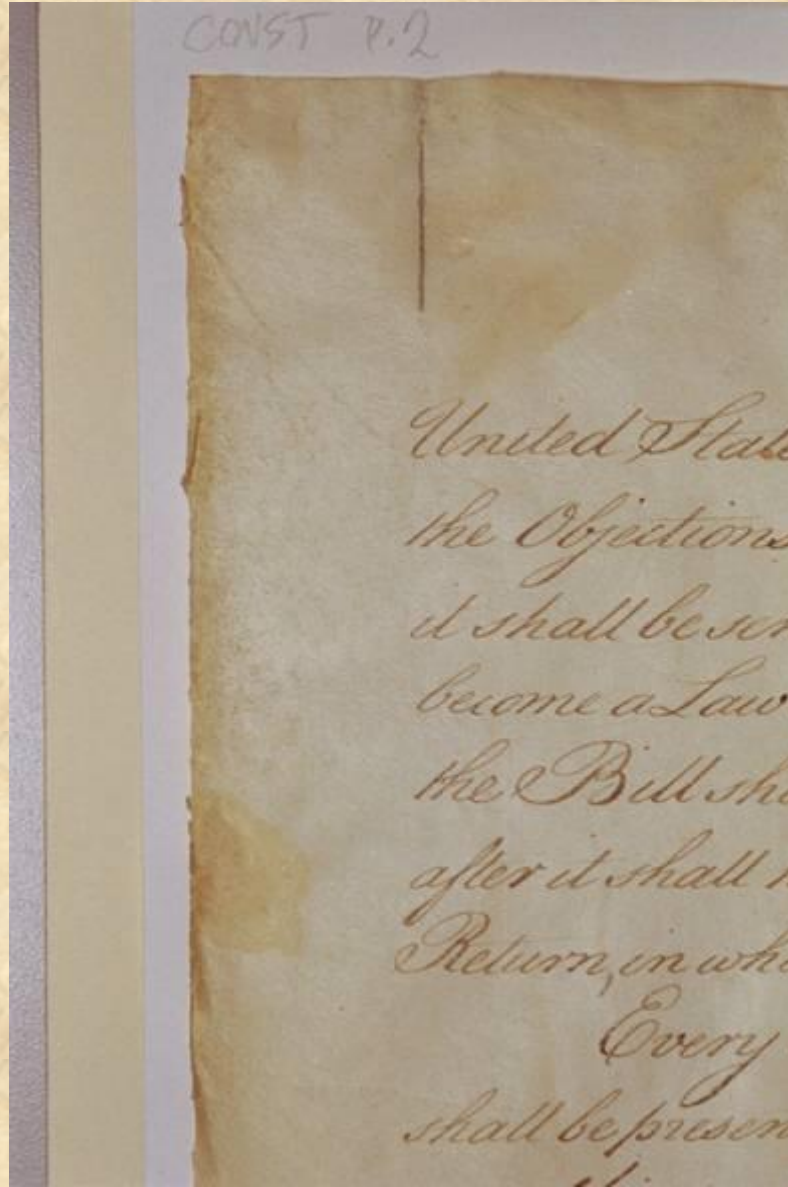 CONST P.2
United State
the Objections
it shall be sen
become a Law
the Bill sha
after it shall
Return, in whi
Every
shall be presen